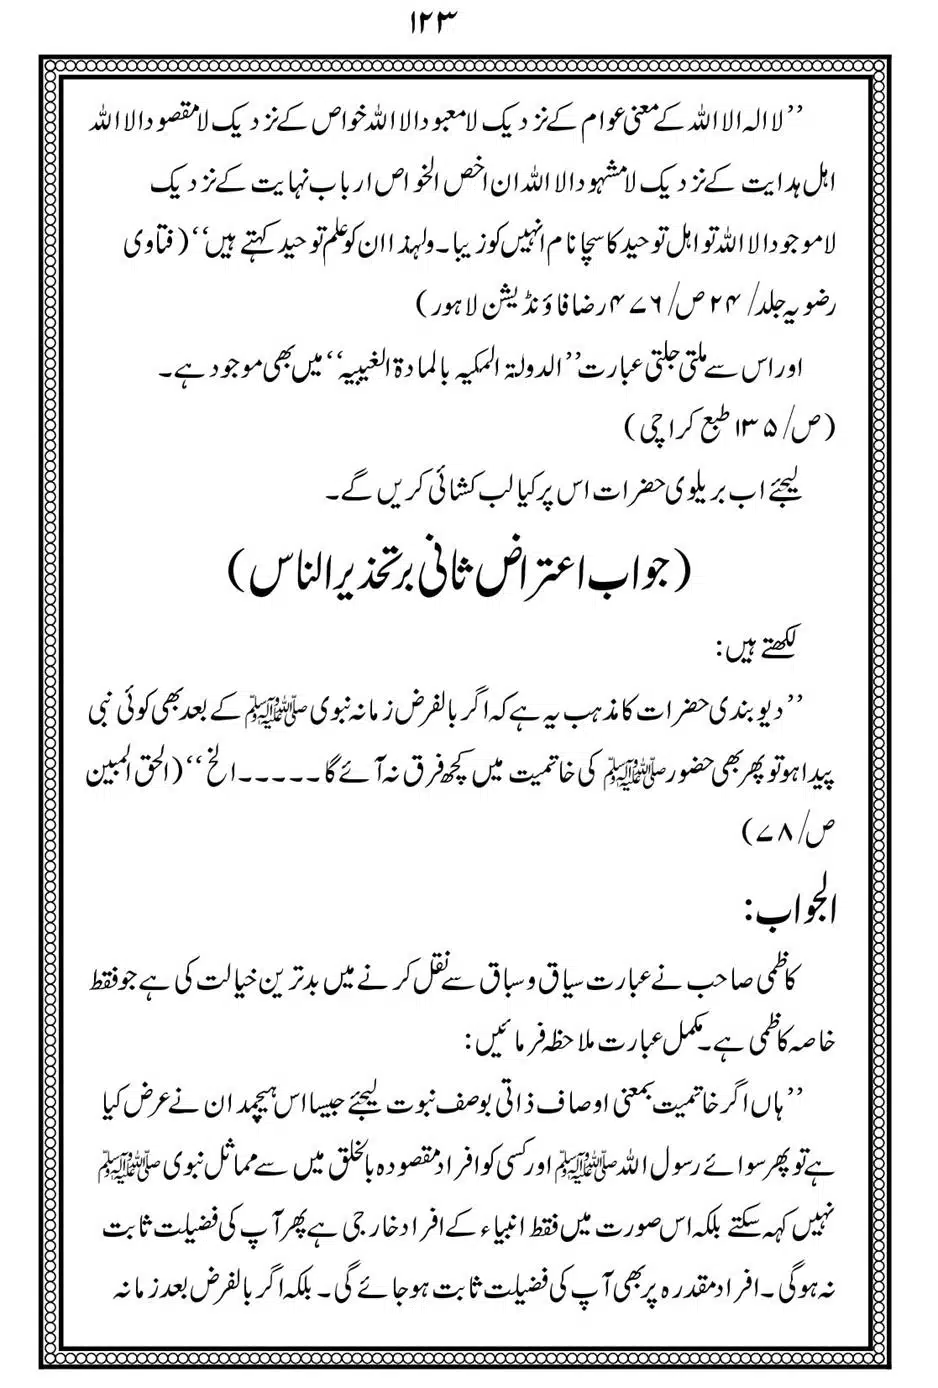 ۱۲۳
’’لا الہ الا اللہ کے معنی عوام کے نزدیک لا معبود الا اللہ خواص کے نزدیک لا مقصود الا اللہ
اہل ہدایت کے نزدیک لا مشہود الا اللہ ان اخص الخواص ارباب نہایت کے نزدیک
لا موجود الا اللہ تو اہل توحید کا سچا نام انہیں کو زیبا۔ ولہذا ان کو علم توحید کہتے ہیں‘‘ (فتاوی
رضویہ جلد/ ۲۴ ص/ ۴۷۶ رضا فاؤنڈیشن لاہور)
اور اس سے ملتی جلتی عبارت ’’الدولۃ المکیہ بالمادۃ الغیبیہ‘‘ میں بھی موجود ہے۔
(ص/ ۱۳۵ طبع کراچی)
لیجئے اب بریلوی حضرات اس پر کیا لب کشائی کریں گے۔
(جواب اعتراض ثانی بر تحذیر الناس)
لکھتے ہیں:
’’دیوبندی حضرات کا مذہب یہ ہے کہ اگر بالفرض زمانہ نبوی ﷺ کے بعد بھی کوئی نبی
پیدا ہو تو پھر بھی حضور ﷺ کی خاتمیت میں کچھ فرق نہ آئے گا۔۔۔۔۔الخ‘‘ (الحق المبین
ص/ ۷۸)
الجواب:
کاظمی صاحب نے عبارت سیاق وسباق سے نقل کرنے میں بدترین خیالت کی ہے جو فقط
خاصہ کاظمی ہے۔ مکمل عبارت ملاحظہ فرمائیں:
’’ہاں اگر خاتمیت بمعنی اوصاف ذاتی بوصف نبوت لیجئے جیسا اس ہیچمدان نے عرض کیا
ہے تو پھر سوائے رسول اللہ ﷺ اور کسی کو افراد مقصودہ بالخلق میں سے مماثل نبوی ﷺ
نہیں کہہ سکتے بلکہ اس صورت میں فقط انبیاء کے افراد خارجی ہے پھر آپ کی فضیلت ثابت
نہ ہوگی۔ افراد مقدرہ پر بھی آپ کی فضیلت ثابت ہو جائے گی۔ بلکہ اگر بالفرض بعد زمانہ